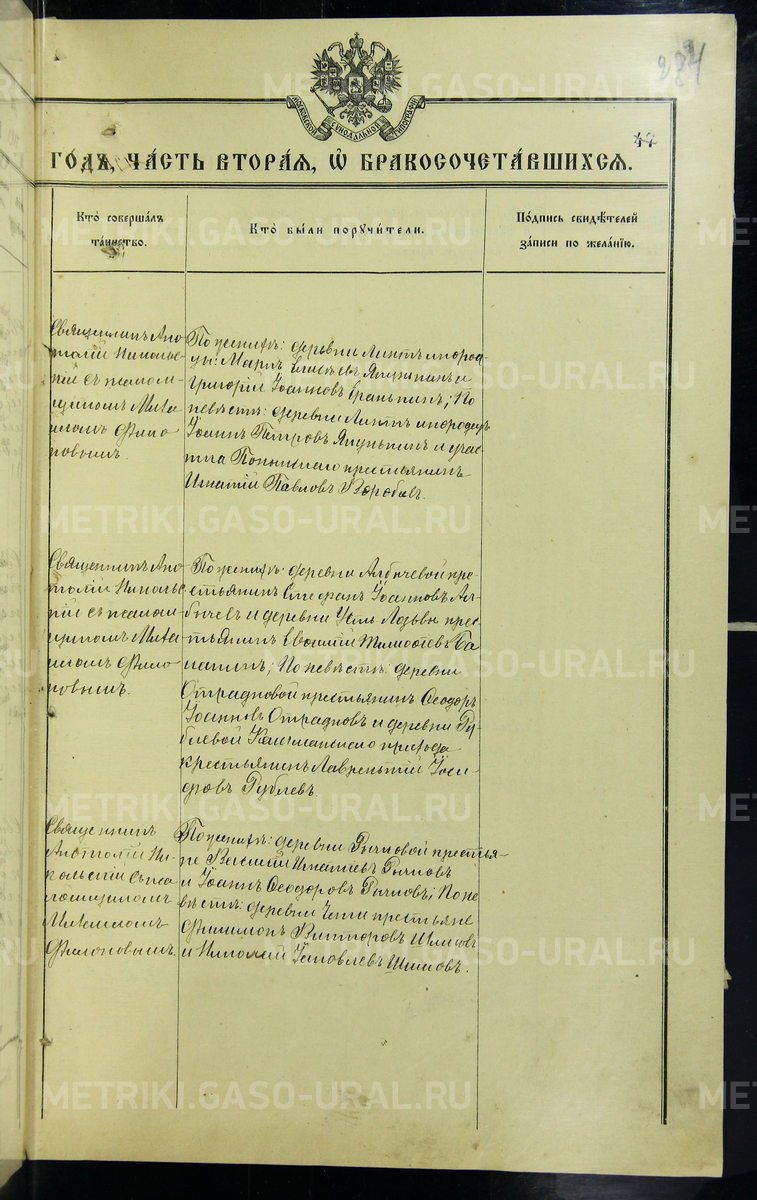 284
МОСКОВСКОЙ СѴНОДАЛЬНОЙ ТИПОГРАФІИ
47
ГОДЪ, ЧАСТЬ ВТОРАЯ, Ѽ БРАКОСОЧЕТАВШИХСЯ.
Кто совершалъ
таинство.
Кто были поручители.
Подпись свидѣтелей
записи по желанію.
Священникъ Ана-
толій Николь-
скій съ псалом-
щикомъ Миха-
иломъ Фило-
новымъ.
По женихѣ: деревни инород-
цы: Маркъ и
Григорій Іоанновъ По
невѣстѣ: деревни инородецъ
Іоаннъ Петровъ и учас-
тка крестьянинъ
Игнатій Павловъ Воробьевъ.
Священникъ Ана-
толій Николь-
скій съ псалом-
щикомъ Миха-
иломъ Фило-
новымъ.
По женихѣ: деревни Албычевой кре-
стьянинъ Стефанъ Іоанновъ Ал-
бычевъ и деревни Усть Ладьвы крес-
тьянинъ Евфимій Тимофеевъ
По невѣстѣ: деревни
Отрадновой крестьянинъ Ѳеодоръ
Іоанновъ Отрадновъ и деревни Ру-
блевой прихода
крестьянинъ Лаврентій Іоси-
фовъ Рублевъ.
Священникъ
Анатолій Ни-
кольскій съ пса-
ломщикомъ
Михаиломъ
Филоновымъ.
По женихѣ: деревни Рычковой крестья-
не Василій Игнатьевъ Рычковъ
и Іоаннъ Ѳеодоровъ Рычковъ; По не-
вѣстѣ: деревни крестьяне
Филимонъ Викторовъ Шишовъ
и Николай Іаковлевъ Шишовъ.
METRIKI.GASO-URAL.RU